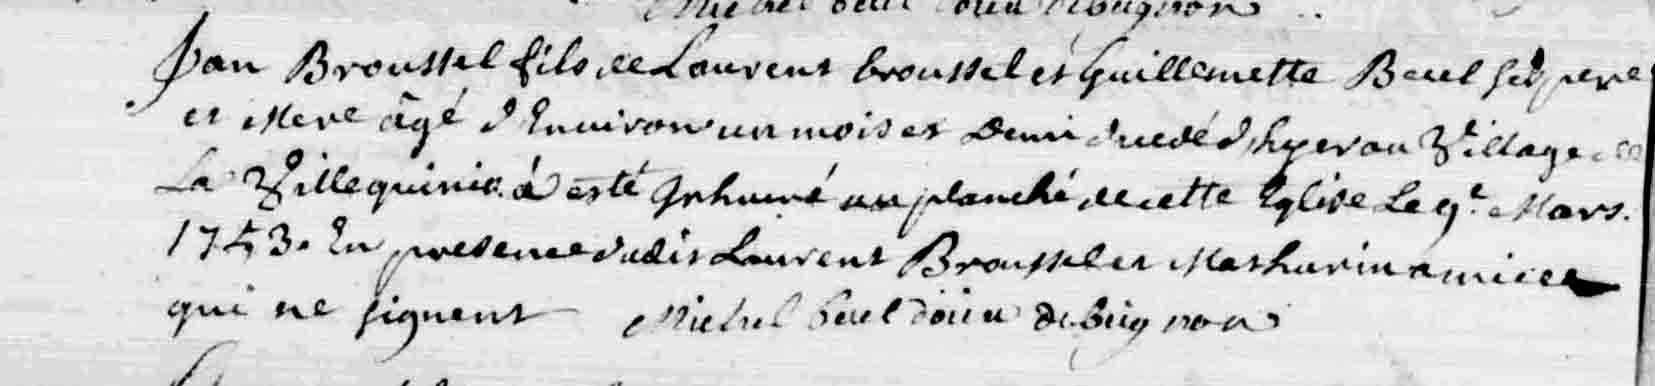 Jan Broussel fils de Laurens broussel et Guillemette Beuel ses pere
et Mere âgé d'Environ un mois et Demi decedé d'hyer au Village de
La Villequinio à esté Inhumé au planché de cette Eglise Le 9e. Mars.
1753. En presence dudit Laurens Broussel et Mathurin amice
qui ne signent Michel beuel